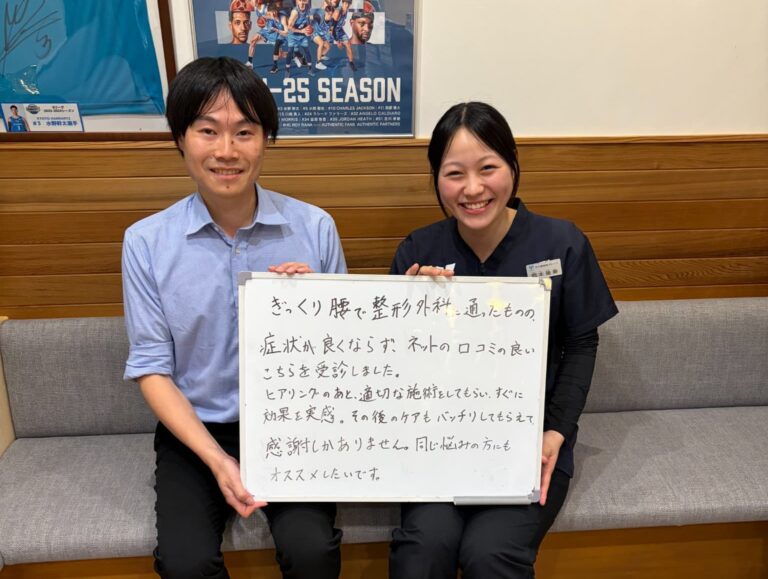 -25 SEASON
CHARLES JACKSON
MORRIS
JORDAN HEATH
AUTHENTIC FANS AUTHENTIC PARTNERS
ぎっくり腰で整形外科に通ったものの、
症状が良くならず、ネットの口コミの良い
こちらを受診しました。
ヒアリングのあと、適切な施術をしてもらい、すぐに
効果を実感。その後のケアもバッチリしてもらえて、
感謝しかありません。同じ悩みの方にも
オススメしたいです。